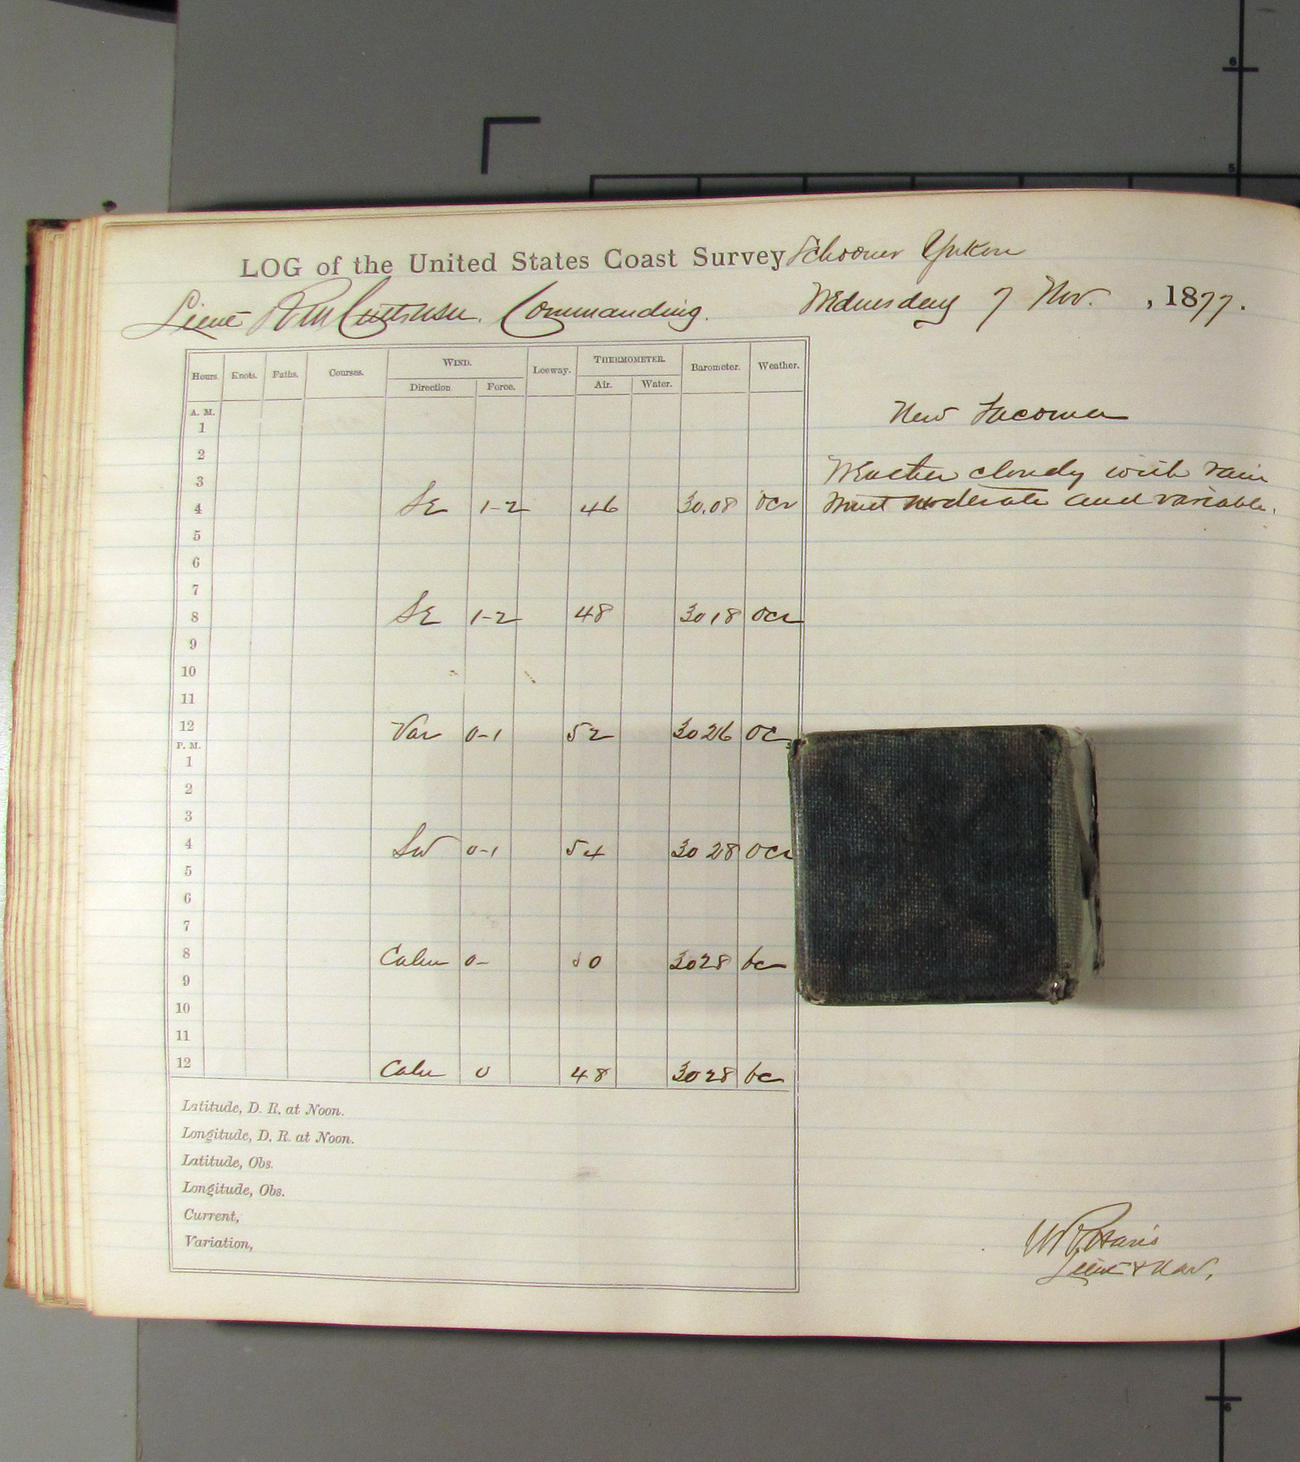 LOG of the United States Coast Survey Schooner Yukon
Lieut Commanding. Wednesday 7 Nov. , 1877.
Hours. Knots. Faths. Courses. WIND. Leeway. THERMOMETER. Barometer. Weather.
Direction. Force. Air. Water.
New Tacoma
A. M.
1
2
Weather cloudy with rain
3
4 SE 1-2 46 30.08 ocr
moderate and variable.
5
6
7
8 SE 1-2 48 30 18 ocr
9
10
11
12 Var 0-1 52 30 26 oc
P. M.
1
2
3
4 SW 0-1 54 30 28 ocr
5
6
7
8 Calm 0- 30 28 bc
9
10
11
12 Calm 0 48 30 28 bc
Latitude, D. R. at Noon.
Longitude, D. R. at Noon.
Latitude, Obs.
Longitude, Obs.
Current,
Variation,
Lieut & Nav.
6
5
6